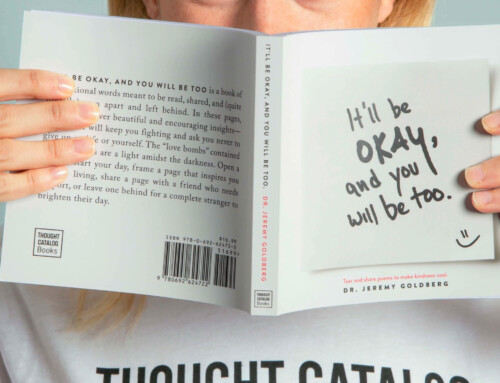 BE OKAY, AND YOU WILL BE TOO is a book of
words meant to be read, shared, and (quite
apart and left behind. In these pages,
beautiful and encouraging insights—
will keep you fighting and ask you never to
give or yourself. The “love bombs” contained
are a light amidst the darkness. Open a
your day, frame a page that inspires you
living, share a page with a friend who needs
or leave one behind for a complete stranger to
brighten their day.
THOUGHT
CATALOG
Books
ISBN 978-0-692-62472-2
9 780692 624722
IT'LL BE OKAY, AND YOU WILL BE TOO.
DR. JEREMY GOLDBERG
THOUGHT
CATALOG
Books
It'll be
OKAY,
and you
will be too.
Tear and share poems to make kindness cool.
DR. JEREMY GOLDBERG
THOUGHT CATALOG